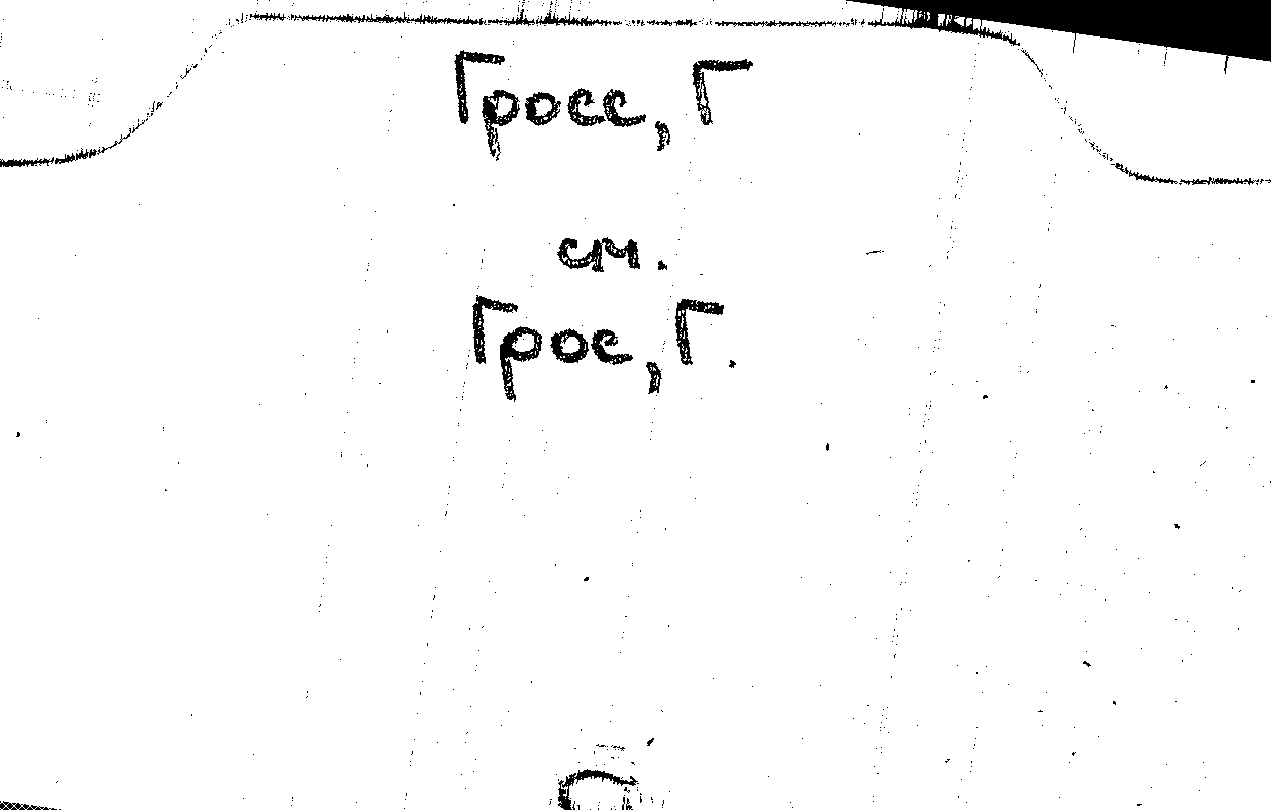 Гросс, Г
см.
Грос, Г.